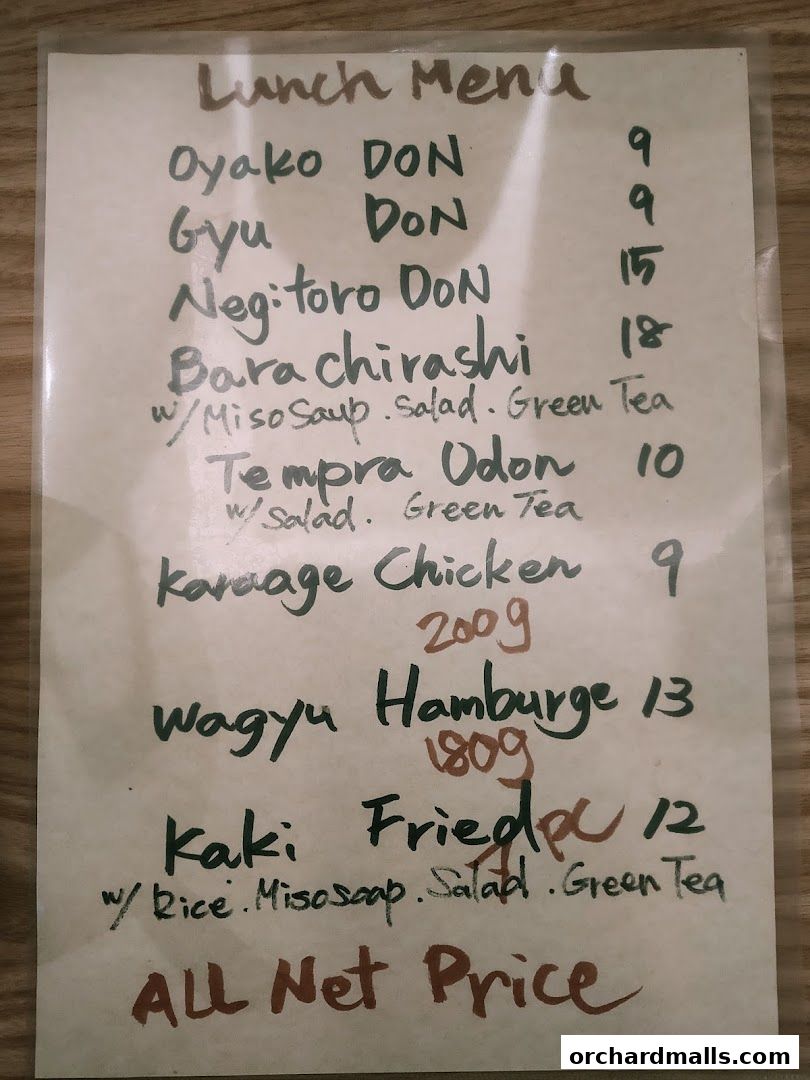 Lunch Menu
Oyako DON 9
Gyu DON 9
Negitoro DON 15
Bara chirashi 18
w/Miso Soup . Salad . Green Tea
Tempra Udon 10
w/Salad . Green Tea
Karaage Chicken 9
200g
Wagyu Hamburge 13
180g
Kaki Fried 12
pc
w/ Rice . Miso Soap . Salad . Green Tea
ALL Net Price
orchardmalls.com